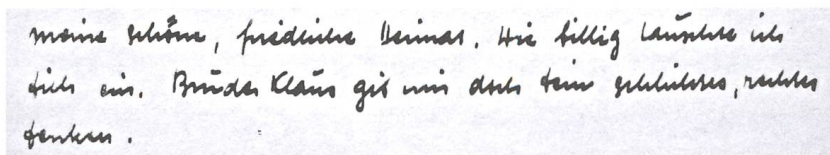 meine schöne, friedliche Heimat. Wie billig tauschte ich
dich ein. Bruder Klaus gib mir doch dein schlichtes, rechtes
denken.